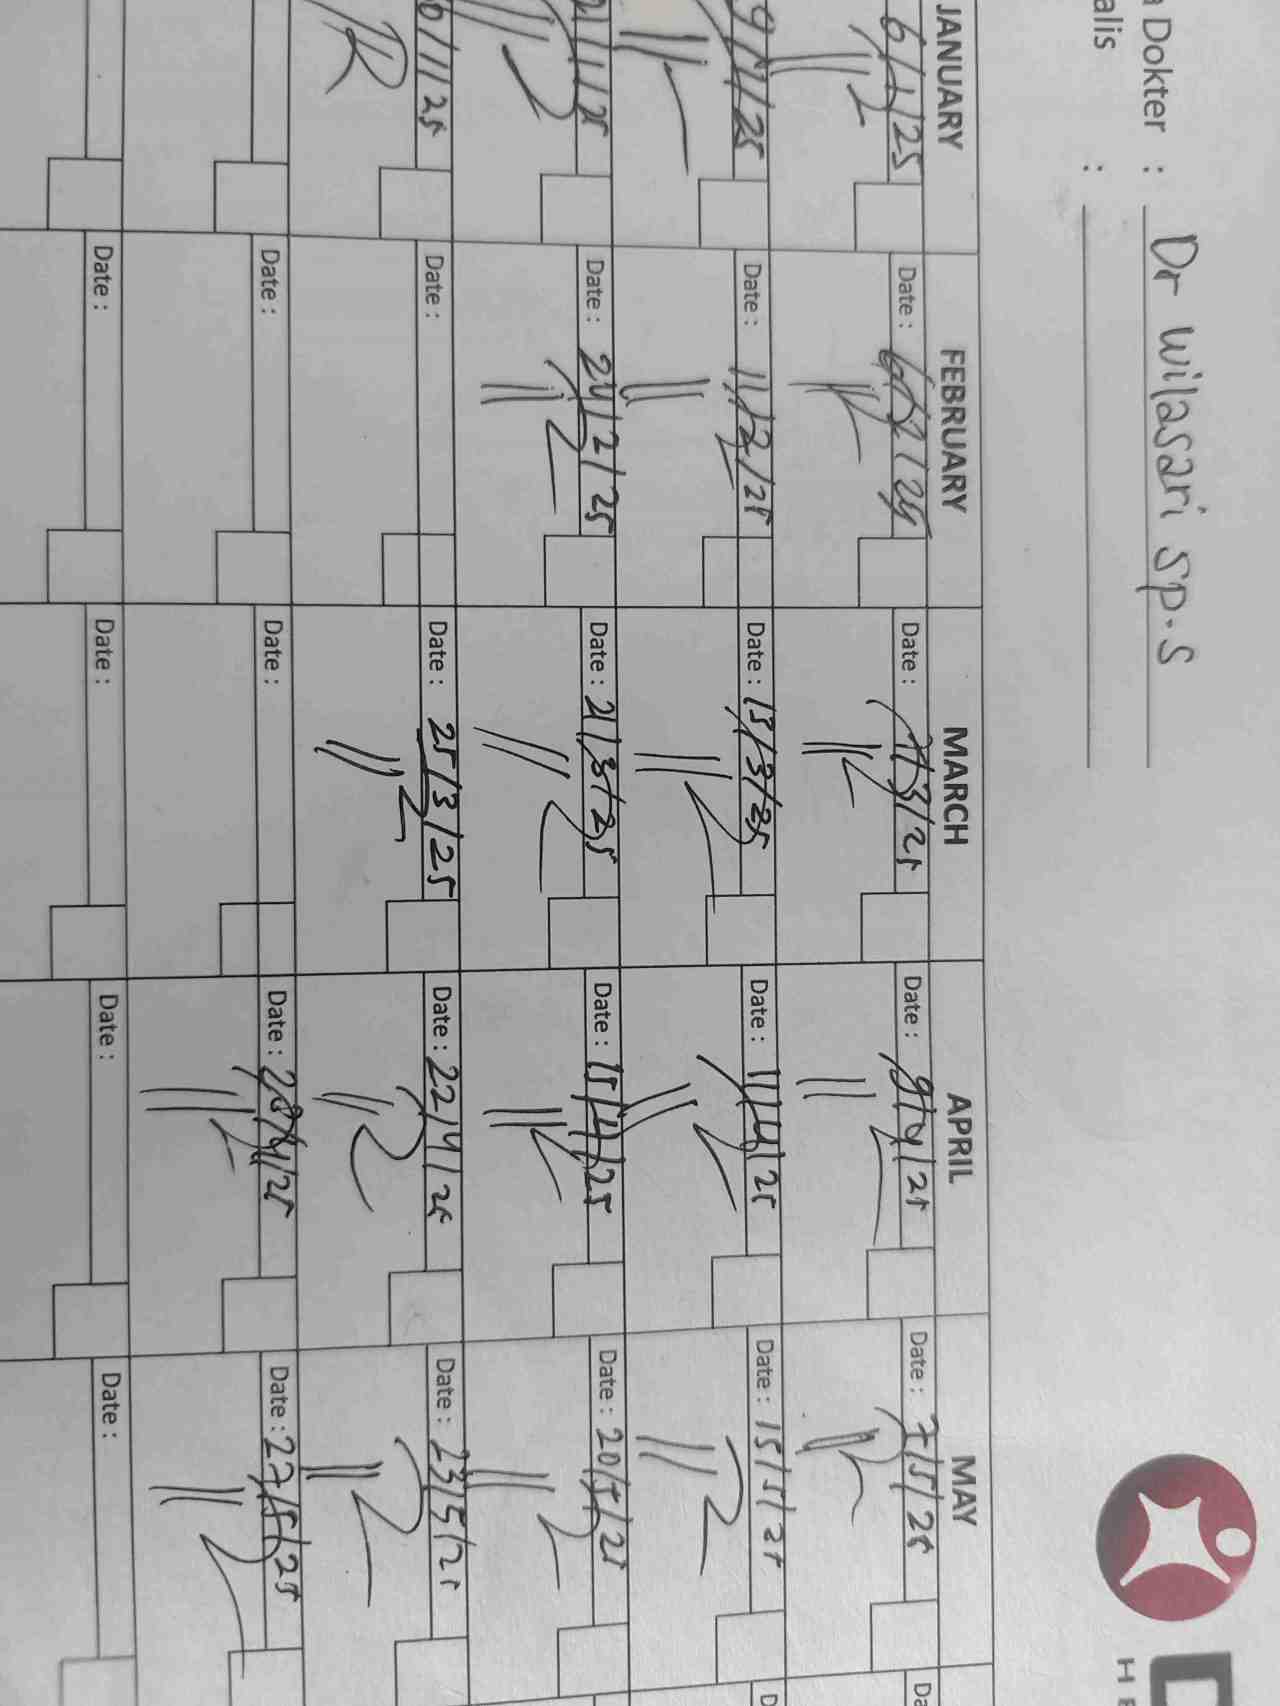 Dokter : Dr wilasari sp.s
alis :
JANUARY FEBRUARY MARCH APRIL MAY
6/1/25 Date : Date : /3/25 Date : 9/4/25 Date : 7/5/25
9/1/25 Date : 11/2/25 Date : 13/3/25 Date : 11/4/25 Date : 15/5/25
21/1/25 Date : 24/2/25 Date : 21/3/25 Date : 15/4/25 Date : 20/5/25
0/1/25 Date : Date : 25/3/25 Date : 22/4/25 Date : 23/5/25
Date : Date : Date : 28/4/25 Date : 27/5/25
Date : Date : Date : Date :